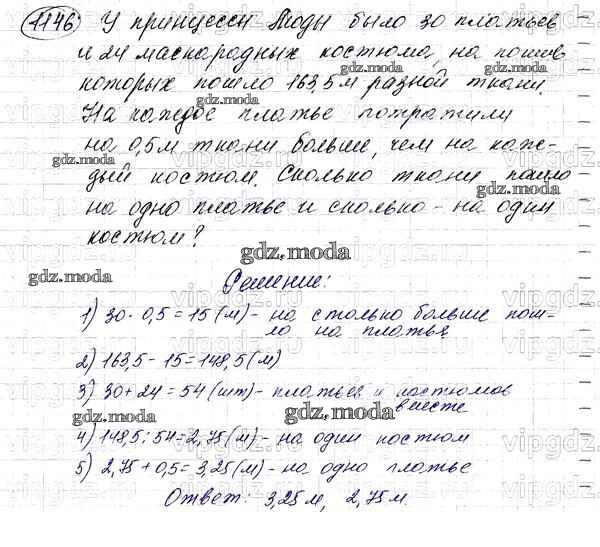 1146 У принцессы Моды было 30 платьев
и 24 маскарадных костюма, на пошив
которых пошло 163,5 м разной ткани.
На каждое платье потратили
на 0,5 м ткани больше, чем на каж-
дый костюм. Сколько ткани пошло
на одно платье и сколько - на один
костюм?
Решение:
1) 30 · 0,5 = 15 (м) - на столько больше пош-
ло на платья
2) 163,5 - 15 = 148,5 (м)
3) 30 + 24 = 54 (шт) - платьев и костюмов
вместе
4) 148,5 : 54 = 2,75 (м) - на один костюм
5) 2,75 + 0,5 = 3,25 (м) - на одно платье
Ответ: 3,25 м, 2,75 м.
gdz.moda
gdz.moda
gdz.moda
gdz.moda
gdz.moda
gdz.moda
gdz.moda
gdz.moda
gdz.moda
gdz.moda